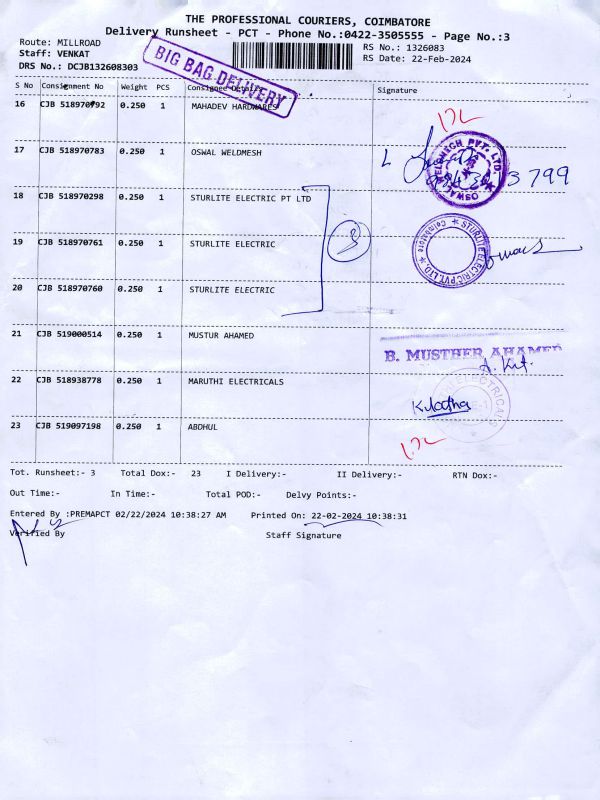 THE PROFESSIONAL COURIERS, COIMBATORE
Delivery Runsheet - PCT - Phone No.:0422-3505555 - Page No.:3
Route: MILLROAD
Staff: VENKAT
DRS No.: DCJB132608303
RS No.: 1326083
RS Date: 22-Feb-2024
BIG BAG DELIVERY
S No Consignment No Weight PCS Consignee Details Signature
16 CJB 518970792 0.250 1 MAHADEV HARDWARES
17 CJB 518970783 0.250 1 OSWAL WELDMESH
OSWAL WELDMESH PVT. LTD.
3799
18 CJB 518970298 0.250 1 STURLITE ELECTRIC PT LTD
19 CJB 518970761 0.250 1 STURLITE ELECTRIC
3
STURLITE ELECTRIC PVT. LTD. Coimbatore
20 CJB 518970760 0.250 1 STURLITE ELECTRIC
21 CJB 519000514 0.250 1 MUSTUR AHAMED
B. MUSTHER AHAMED
22 CJB 518938778 0.250 1 MARUTHI ELECTRICALS
ELECTRICALS
23 CJB 519097198 0.250 1 ABDHUL
Tot. Runsheet:- 3 Total Dox:- 23 I Delivery:- II Delivery:- RTN Dox:-
Out Time:- In Time:- Total POD:- Delvy Points:-
Entered By :PREMAPCT 02/22/2024 10:38:27 AM Printed On: 22-02-2024 10:38:31
Verified By Staff Signature